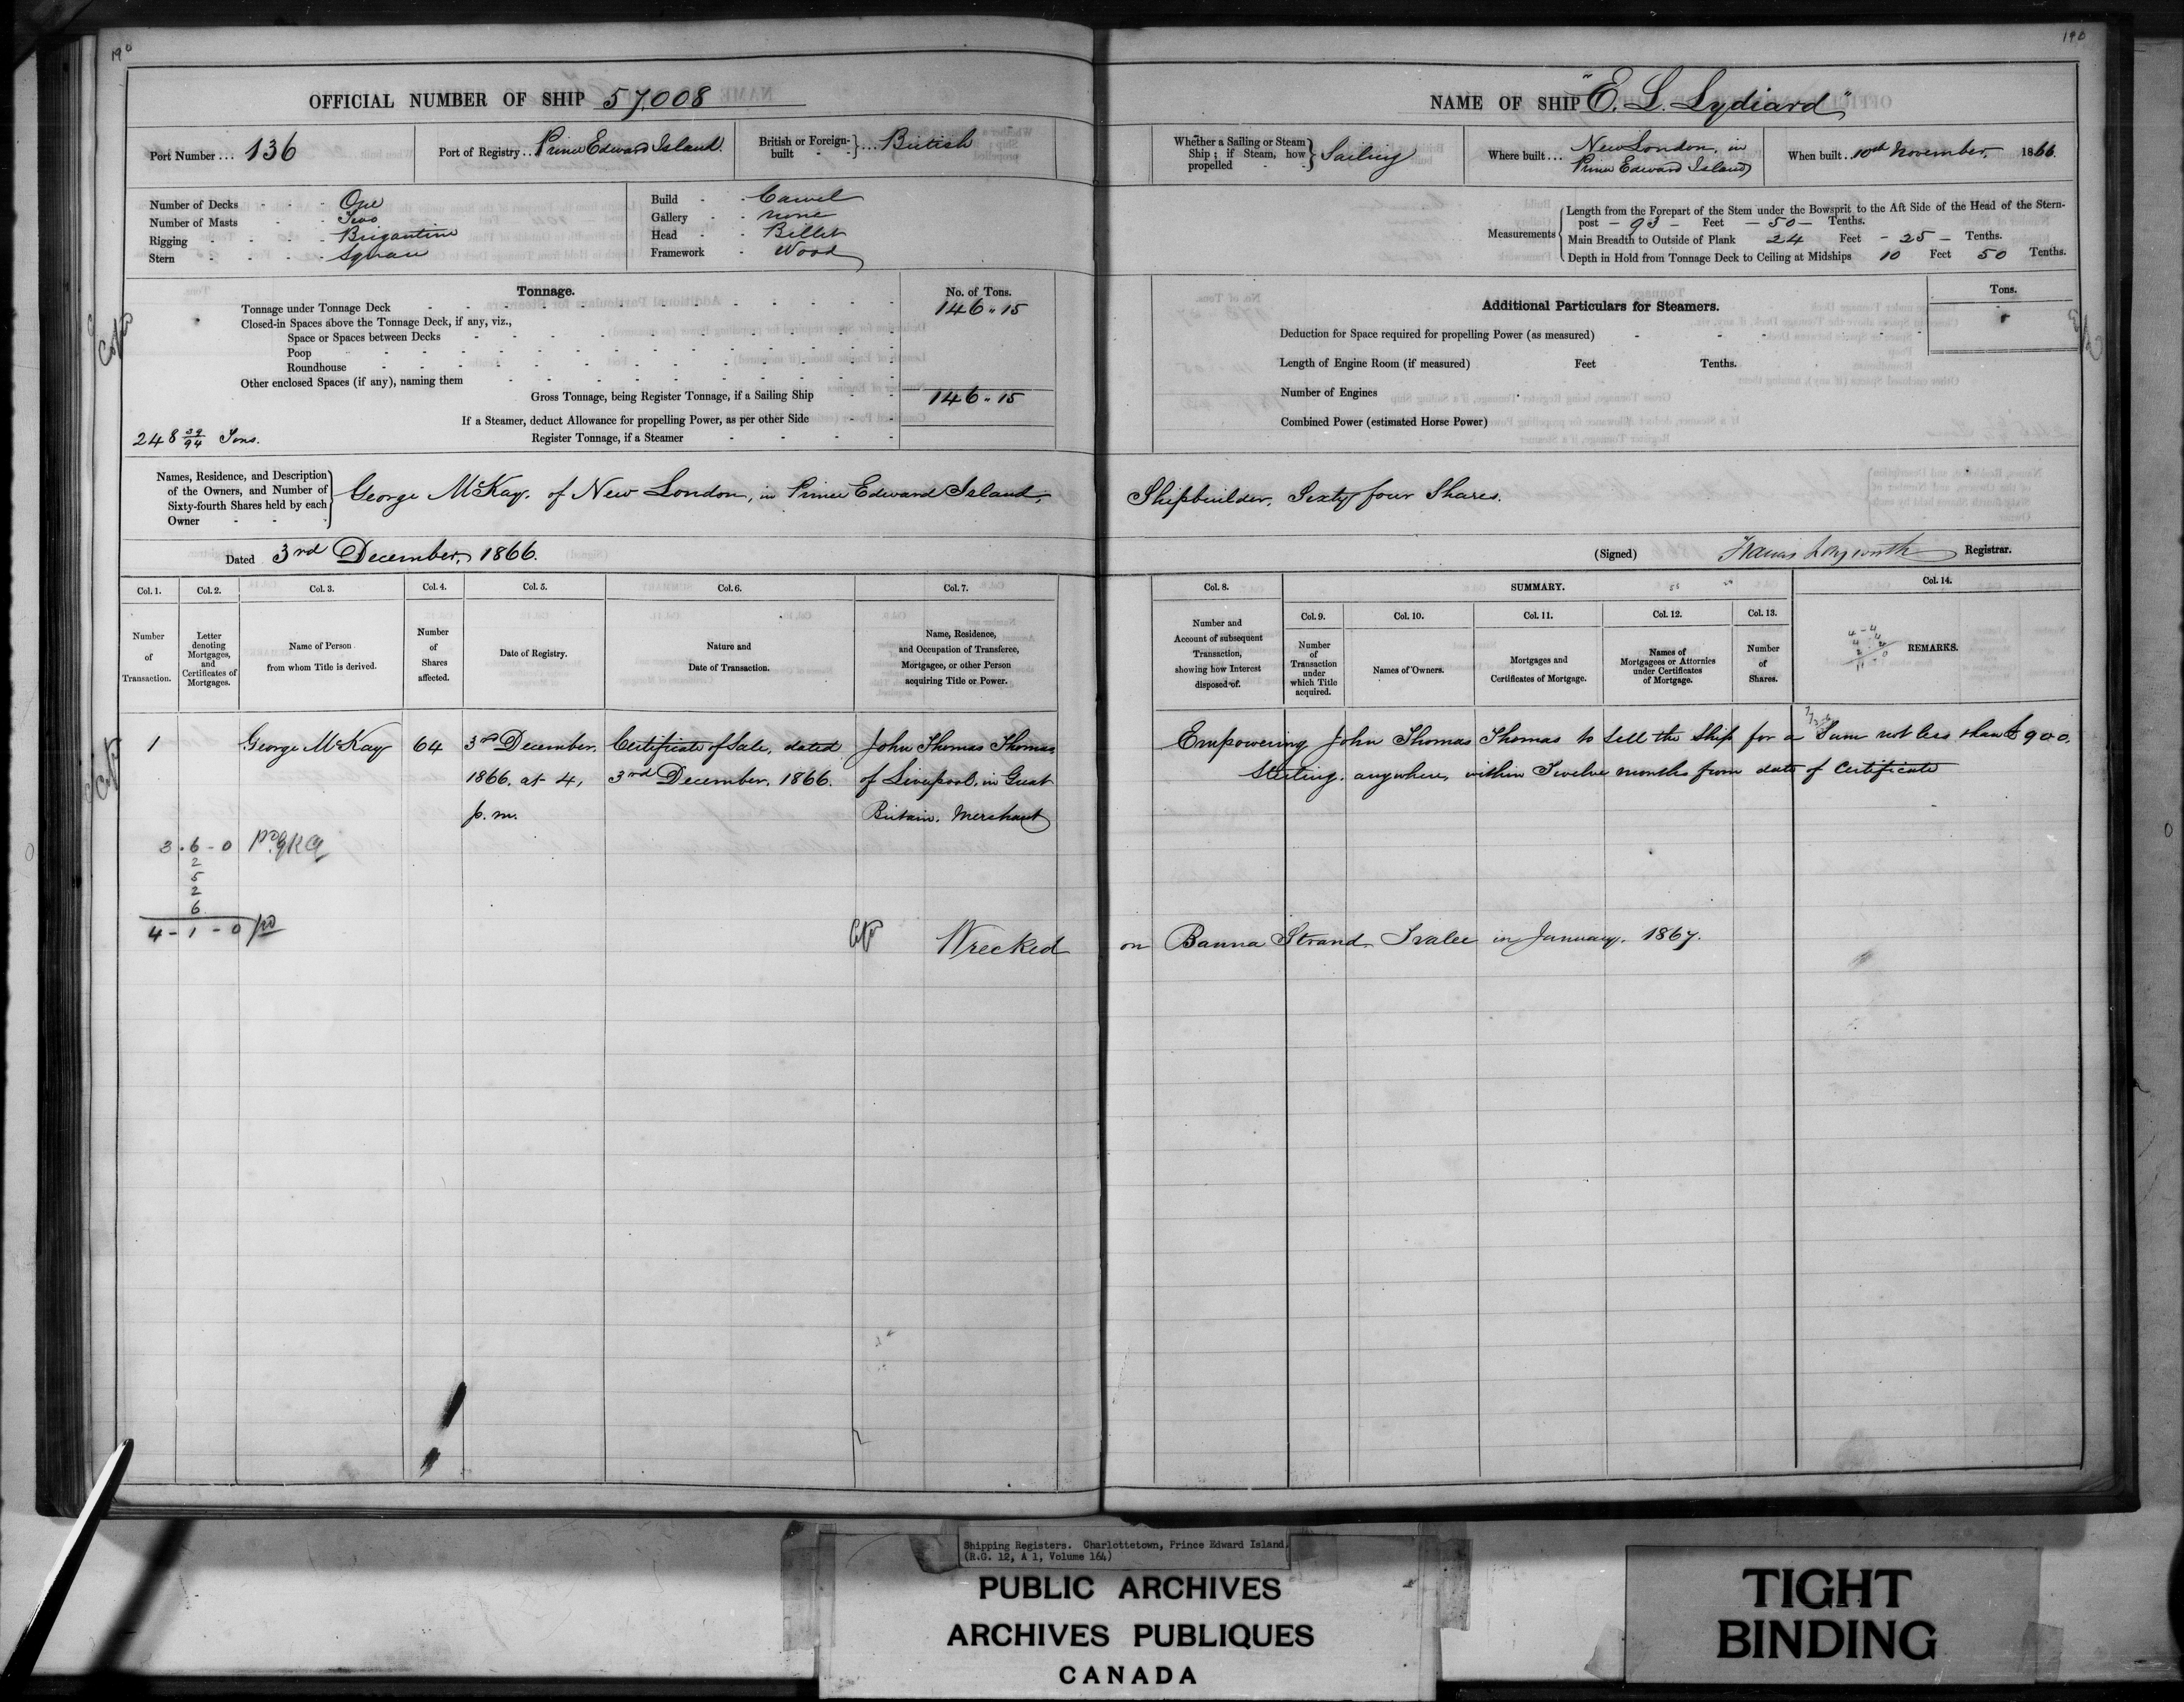 190
OFFICIAL NUMBER OF SHIP 57.008
Port Number ... 136
Port of Registry .. Prince Edward Island.
British or Foreign-built } ... British
Number of Decks - One
Number of Masts - Two
Rigging - Brigantine
Stern - Square
Build - Carvel
Gallery - none
Head - Billet
Framework - Wood
Tonnage.
No. of Tons.
Tonnage under Tonnage Deck 146 " 15
Closed-in Spaces above the Tonnage Deck, if any, viz.,
Space or Spaces between Decks
Poop
Roundhouse
Other enclosed Spaces (if any), naming them
Gross Tonnage, being Register Tonnage, if a Sailing Ship 146 " 15
If a Steamer, deduct Allowance for propelling Power, as per other Side
248 39/94 Tons. Register Tonnage, if a Steamer
Names, Residence, and Description of the Owners, and Number of Sixty-fourth Shares held by each Owner } George McKay, of New London, in Prince Edward Island,
Dated 3rd December, 1866.
Col. 1. Col. 2. Col. 3. Col. 4. Col. 5. Col. 6. Col. 7.
Number of Transaction.
Letter denoting Mortgages, and Certificates of Mortgages.
Name of Person from whom Title is derived.
Number of Shares affected.
Date of Registry.
Nature and Date of Transaction.
Name, Residence, and Occupation of Transferee, Mortgagee, or other Person acquiring Title or Power.
1 George McKay 64 3rd December. Certificate of Sale, dated John Thomas Thomas
1866. at 4, 3rd December, 1866. of Liverpool, in Great
p. m. Britain. Merchant
3 . 6 - 0
2
5
2
6
4 - 1 - 0
Wrecked
190
NAME OF SHIP "E. L. Lydiard"
Whether a Sailing or Steam Ship; if Steam, how propelled } Sailing
Where built ... New London, in Prince Edward Island
When built .. 10th November, 1866.
Measurements { Length from the Forepart of the Stem under the Bowsprit to the Aft Side of the Head of the Stern-
post - 93 - Feet - 50 - Tenths.
Main Breadth to Outside of Plank 24 Feet - 25 - Tenths.
Depth in Hold from Tonnage Deck to Ceiling at Midships 10 Feet 50 Tenths.
Additional Particulars for Steamers.
Tons.
Deduction for Space required for propelling Power (as measured)
Length of Engine Room (if measured) Feet Tenths.
Number of Engines
Combined Power (estimated Horse Power)
Shipbuilder, Sixty four Shares.
(Signed) Francis Longworth Registrar.
Col. 8. SUMMARY. Col. 14.
Col. 9. Col. 10. Col. 11. Col. 12. Col. 13.
Number and Account of subsequent Transaction, showing how Interest disposed of.
Number of Transaction under which Title acquired.
Names of Owners.
Mortgages and Certificates of Mortgage.
Names of Mortgagees or Attornies under Certificates of Mortgage.
Number of Shares.
REMARKS.
Empowering John Thomas Thomas to sell the Ship for a Sum not less than £900.
Sterling. anywhere, within Twelve months from date of Certificate
on Banna Strand Tralee in January. 1867.
Shipping Registers. Charlottetown, Prince Edward Island.
(R.G. 12, A 1, Volume 164)
PUBLIC ARCHIVES
ARCHIVES PUBLIQUES
CANADA
TIGHT
BINDING